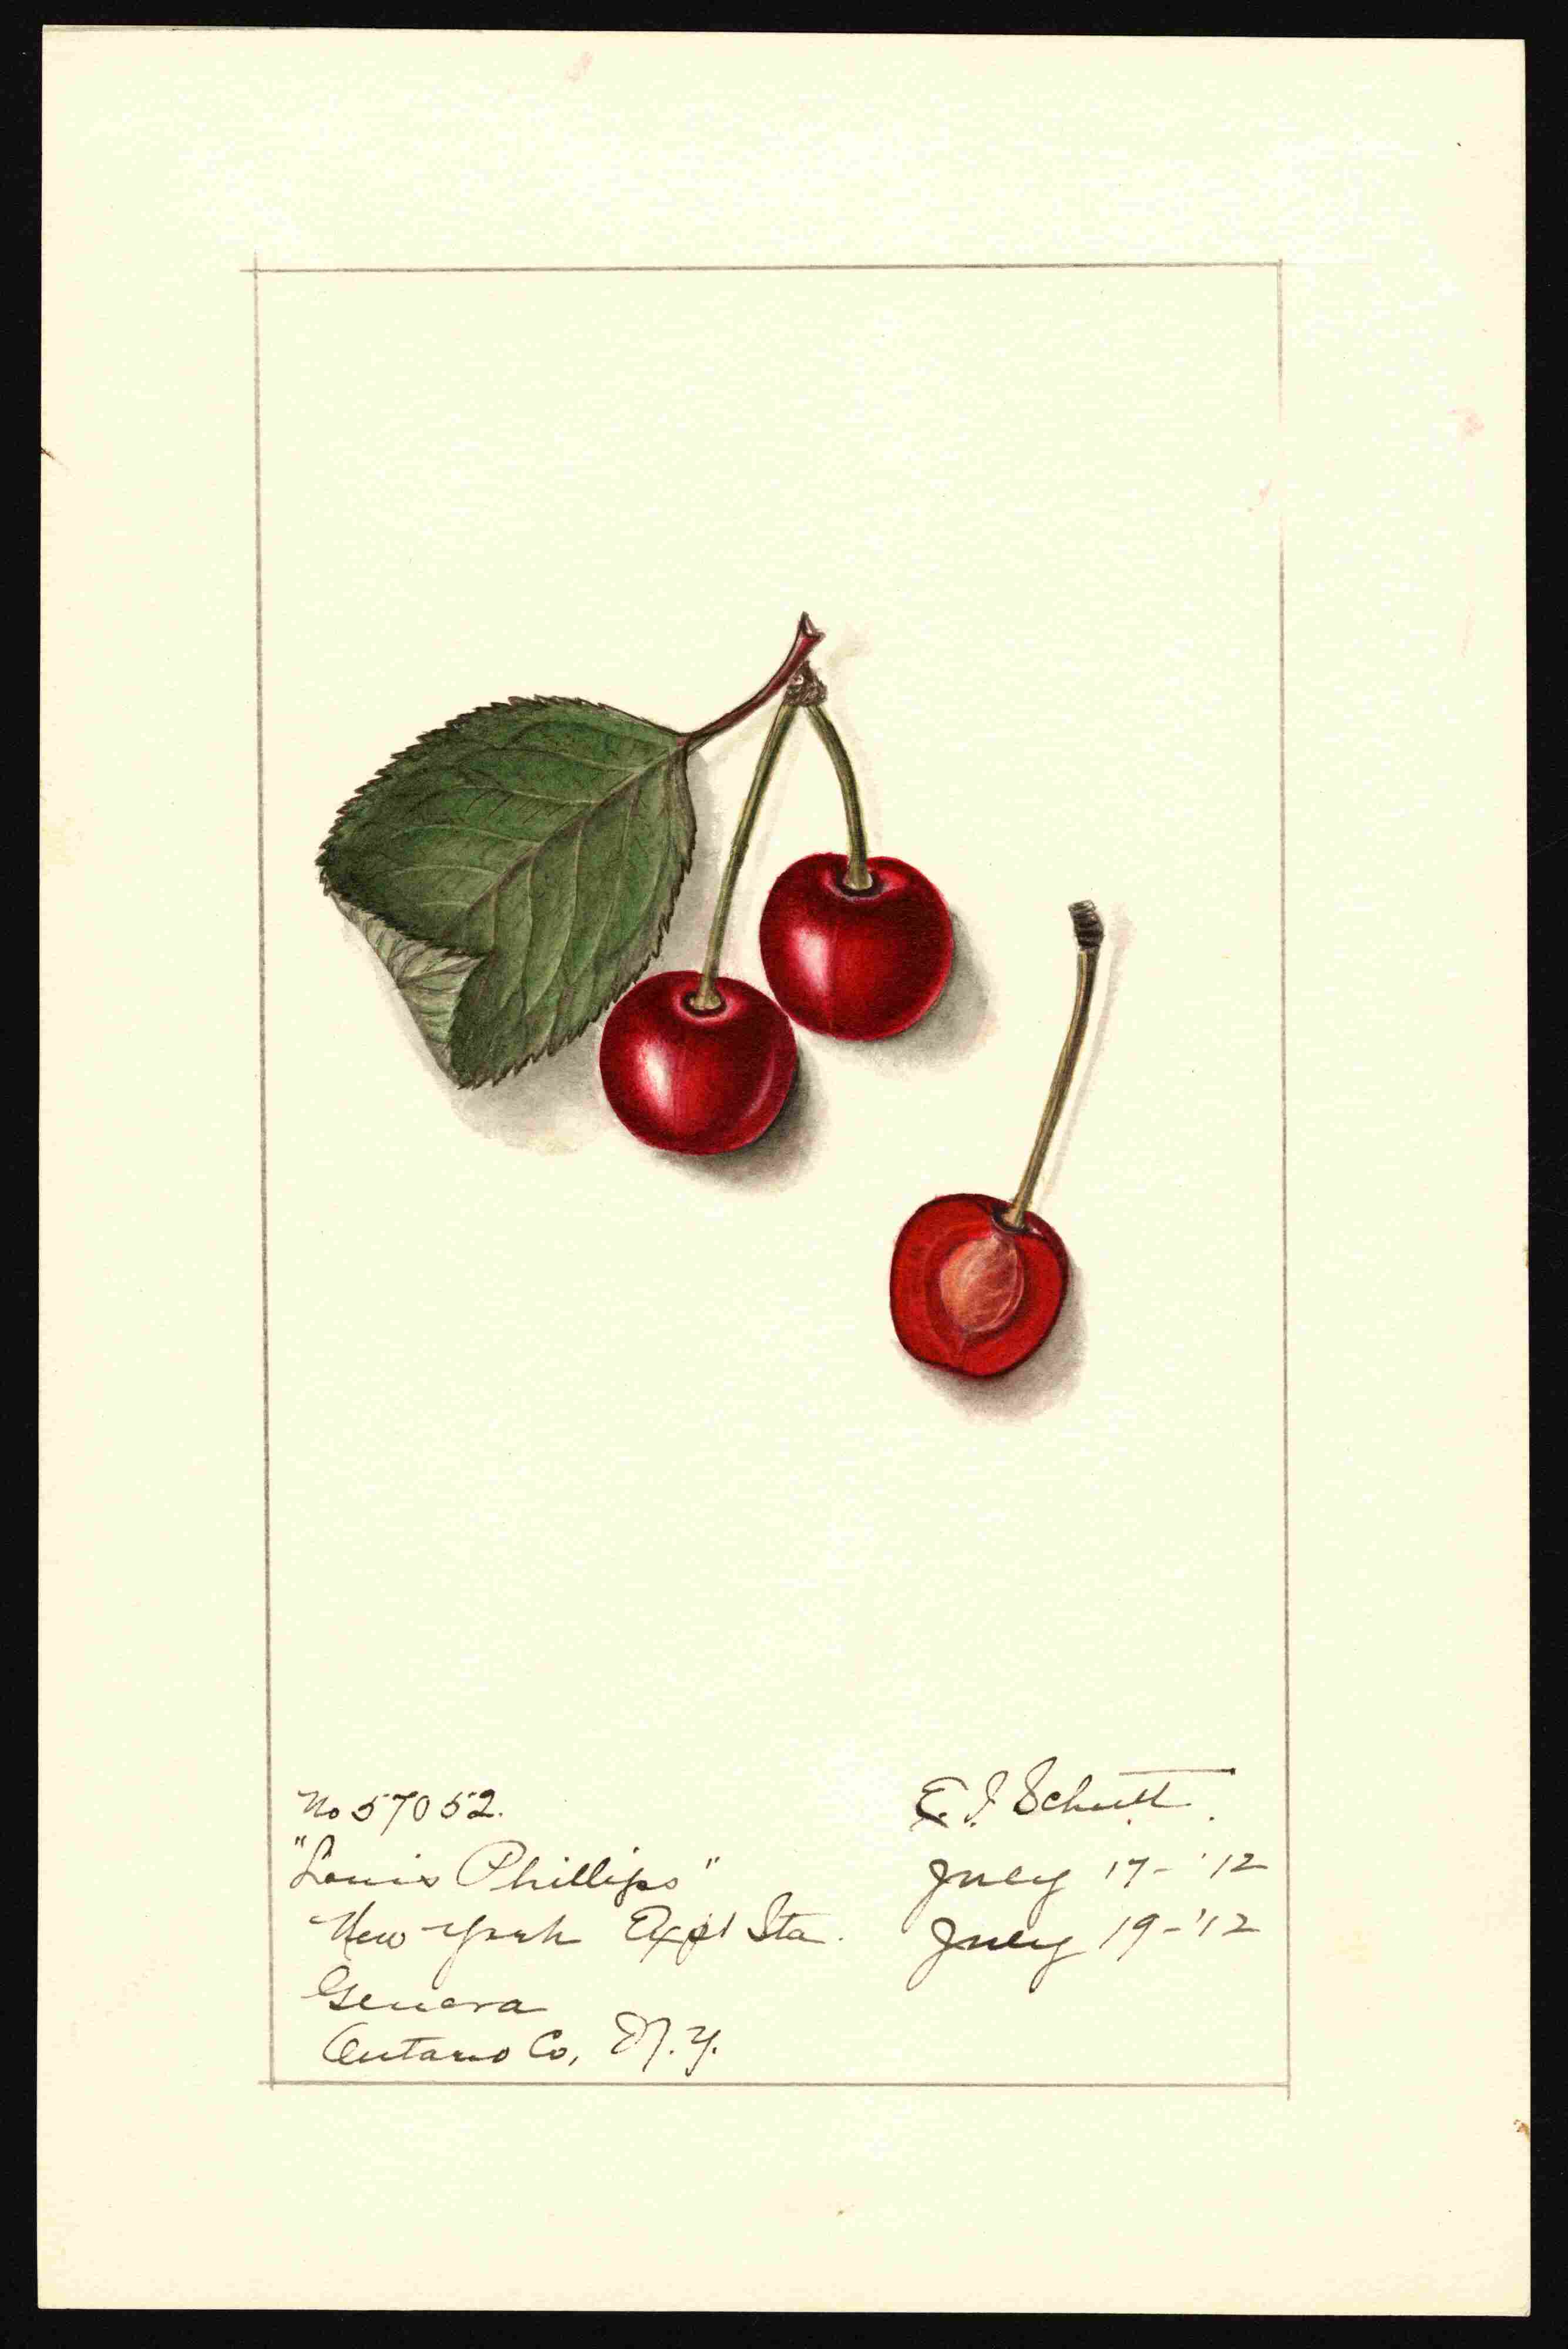 No 57052.
"Louis Phillips"
New York Expt Sta.
Geneva
Ontario Co, N.Y.
E. I. Schutt.
July 17-'12
July 19-'12